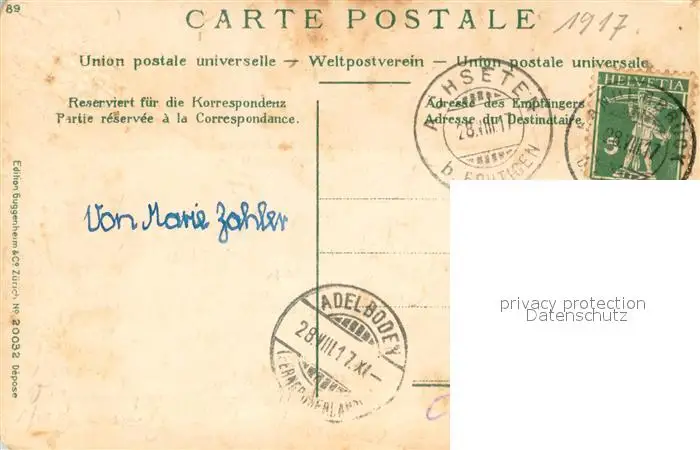 89
CARTE POSTALE
1917.
Union postale universelle — Weltpostverein — Union postale universale
Reserviert für die Korrespondenz
Partie réservée à la Correspondance.
Adresse des Empfängers
Adresse du Destinataire.
HELVETIA
5
ACHSETEN
28.VIII.17
b. FRUTIGEN
28.VIII.17
Von Marie Zahler
ADELBODEN
28.VIII.17.XI—
(BERNER OBERLAND)
Edition Guggenheim & Co Zürich No 20032 Dépose
privacy protection
Datenschutz